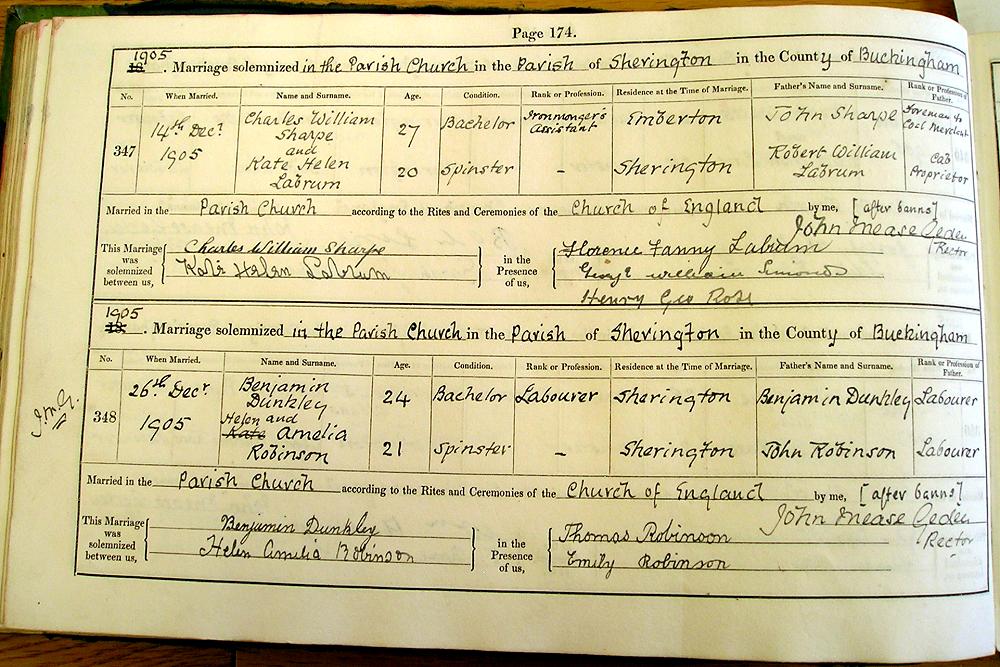 Page 174.
1905
18 . Marriage solemnized in the Parish Church in the Parish of Sherington in the County of Buckingham
No. When Married. Name and Surname. Age. Condition. Rank or Profession. Residence at the Time of Marriage. Father's Name and Surname. Rank or Profession of Father.
347 14th Decr 1905 Charles William Sharpe 27 Bachelor Ironmonger's Assistant Emberton John Sharpe Foreman to Coal Merchant
and
Kate Helen Labrum 20 Spinster – Sherington Robert William Labrum Cab Proprietor
Married in the Parish Church according to the Rites and Ceremonies of the Church of England by me, [after banns]
John Mease Geden
Rector
This Marriage was solemnized between us,
Charles William Sharpe
Kate Helen Labrum
in the Presence of us,
Florence Fanny Labrum
George William Simonds
Henry Geo Rose
1905
18 . Marriage solemnized in the Parish Church in the Parish of Sherington in the County of Buckingham
No. When Married. Name and Surname. Age. Condition. Rank or Profession. Residence at the Time of Marriage. Father's Name and Surname. Rank or Profession of Father.
J.M.G.
348 26th Decr 1905 Benjamin Dunkley 24 Bachelor Labourer Sherington Benjamin Dunkley Labourer
Helen and
Kate Amelia Robinson 21 Spinster – Sherington John Robinson Labourer
Married in the Parish Church according to the Rites and Ceremonies of the Church of England by me, [after banns]
John Mease Geden
Rector
This Marriage was solemnized between us,
Benjamin Dunkley
Helen Amelia Robinson
in the Presence of us,
Thomas Robinson
Emily Robinson